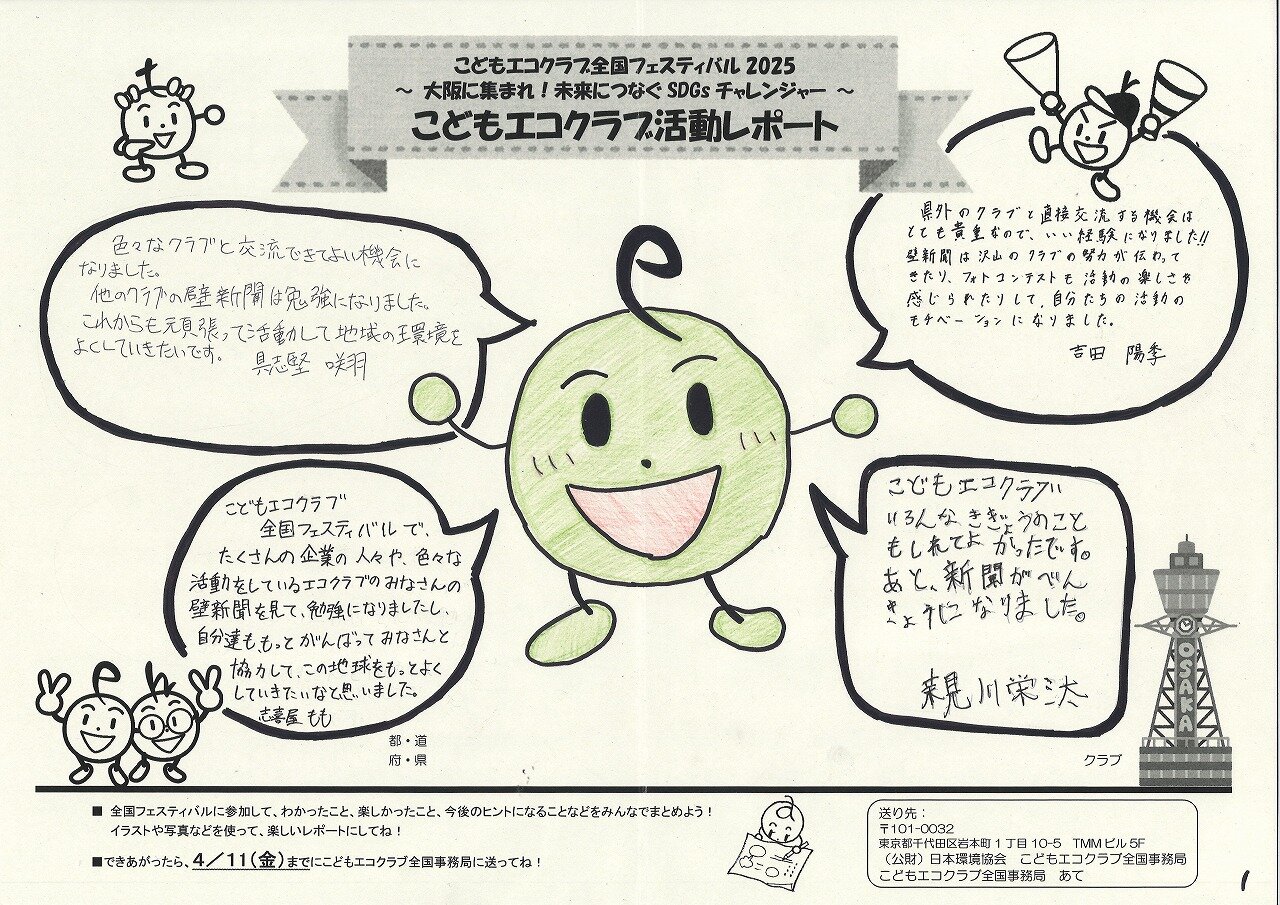 こどもエコクラブ全国フェスティバル 2025
～ 大阪に集まれ！未来につなぐ SDGs チャレンジャー ～
こどもエコクラブ活動レポート
色々なクラブと交流できてよい機会に
なりました。
他のクラブの壁新聞は勉強になりました。
これからも頑張って活動して地域の環境を
よくしていきたいです。
具志堅 咲羽
県外のクラブと直接交流する機会は
とても貴重なので、いい経験になりました!!
壁新聞は沢山のクラブの努力が伝わって
きたり、フォトコンテストも活動の楽しさを
感じられたりして、自分たちの活動の
モチベーションになりました。
吉田 陽季
こどもエコクラブ
全国フェスティバルで、
たくさんの企業の人々や、色々な
活動をしているエコクラブのみなさんの
壁新聞を見て、勉強になりましたし、
自分達も、もっとがんばってみなさんと
協力して、この地球をもっとよく
していきたいなと思いました。
志喜屋 もも
こどもエコクラブい
いろんなきぎょうのこと
もしれてよかったです。
あと、新聞がべん
きょうになりました。
川栄汰
OSAKA
都・道
府・県
クラブ
■ 全国フェスティバルに参加して、わかったこと、楽しかったこと、今後のヒントになることなどをみんなでまとめよう！
イラストや写真などを使って、楽しいレポートにしてね！
■できあがったら、4／11(金)までにこどもエコクラブ全国事務局に送ってね！
送り先：
〒101-0032
東京都千代田区岩本町 1 丁目 10-5 TMM ビル 5F
（公財）日本環境協会 こどもエコクラブ全国事務局
こどもエコクラブ全国事務局 あて
1